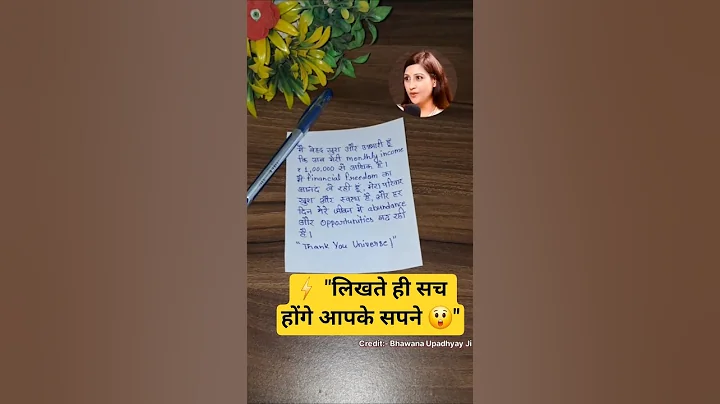 मैं बेहद खुश और आभारी हूँ
कि अब मेरी monthly income
₹ 1,00,000 से अधिक है।
मैं Financial Freedom का
आनंद ले रही हूँ, मेरा परिवार
खुश और स्वस्थ है, और हर
दिन मेरे जीवन में abundance
और opportunities बढ़ रही
है।
"Thank You Universe!"
⚡ "लिखते ही सच
होंगे आपके सपने 😲"
Credit:- Bhawana Upadhyay Ji